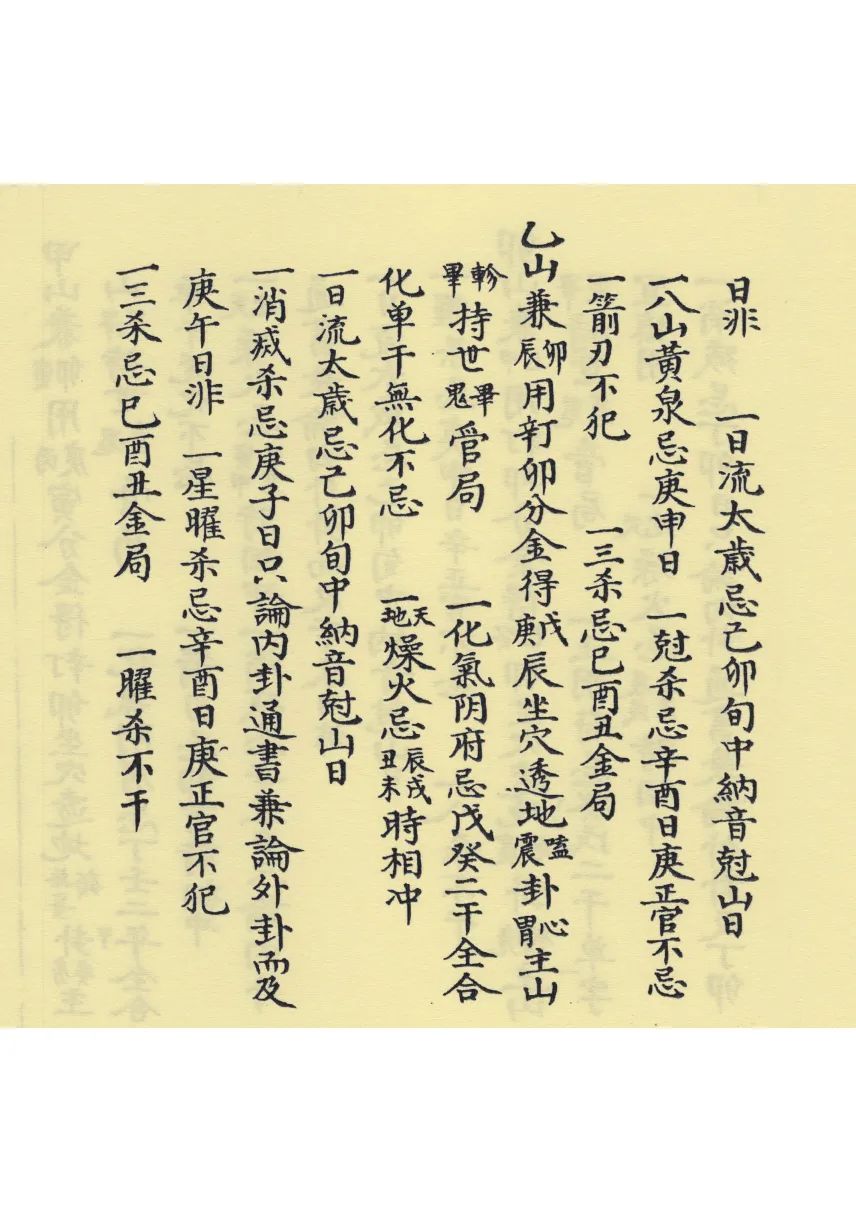 日非　一日流太歲忌己卯旬中納音尅山日
一八山黃泉忌庚申日　一尅杀忌辛酉日庚正官不忌
一箭刃不犯　一三杀忌巳酉丑金局
乙山兼卯辰用辛丁卯分金得戊庚辰坐穴透地嗑震卦心胃主山
軫畢持世畢鬼管局　一化氣阴府忌戊癸二干全合
化单干無化不忌　一天地燥火忌辰戌丑未時相冲
一日流太歲忌己卯旬中納音尅山日
一消滅杀忌庚子日只論內卦通書兼論外卦而及
庚午日非　一星曜杀忌辛酉日庚正官不犯
一三杀忌巳酉丑金局　一曜杀不干